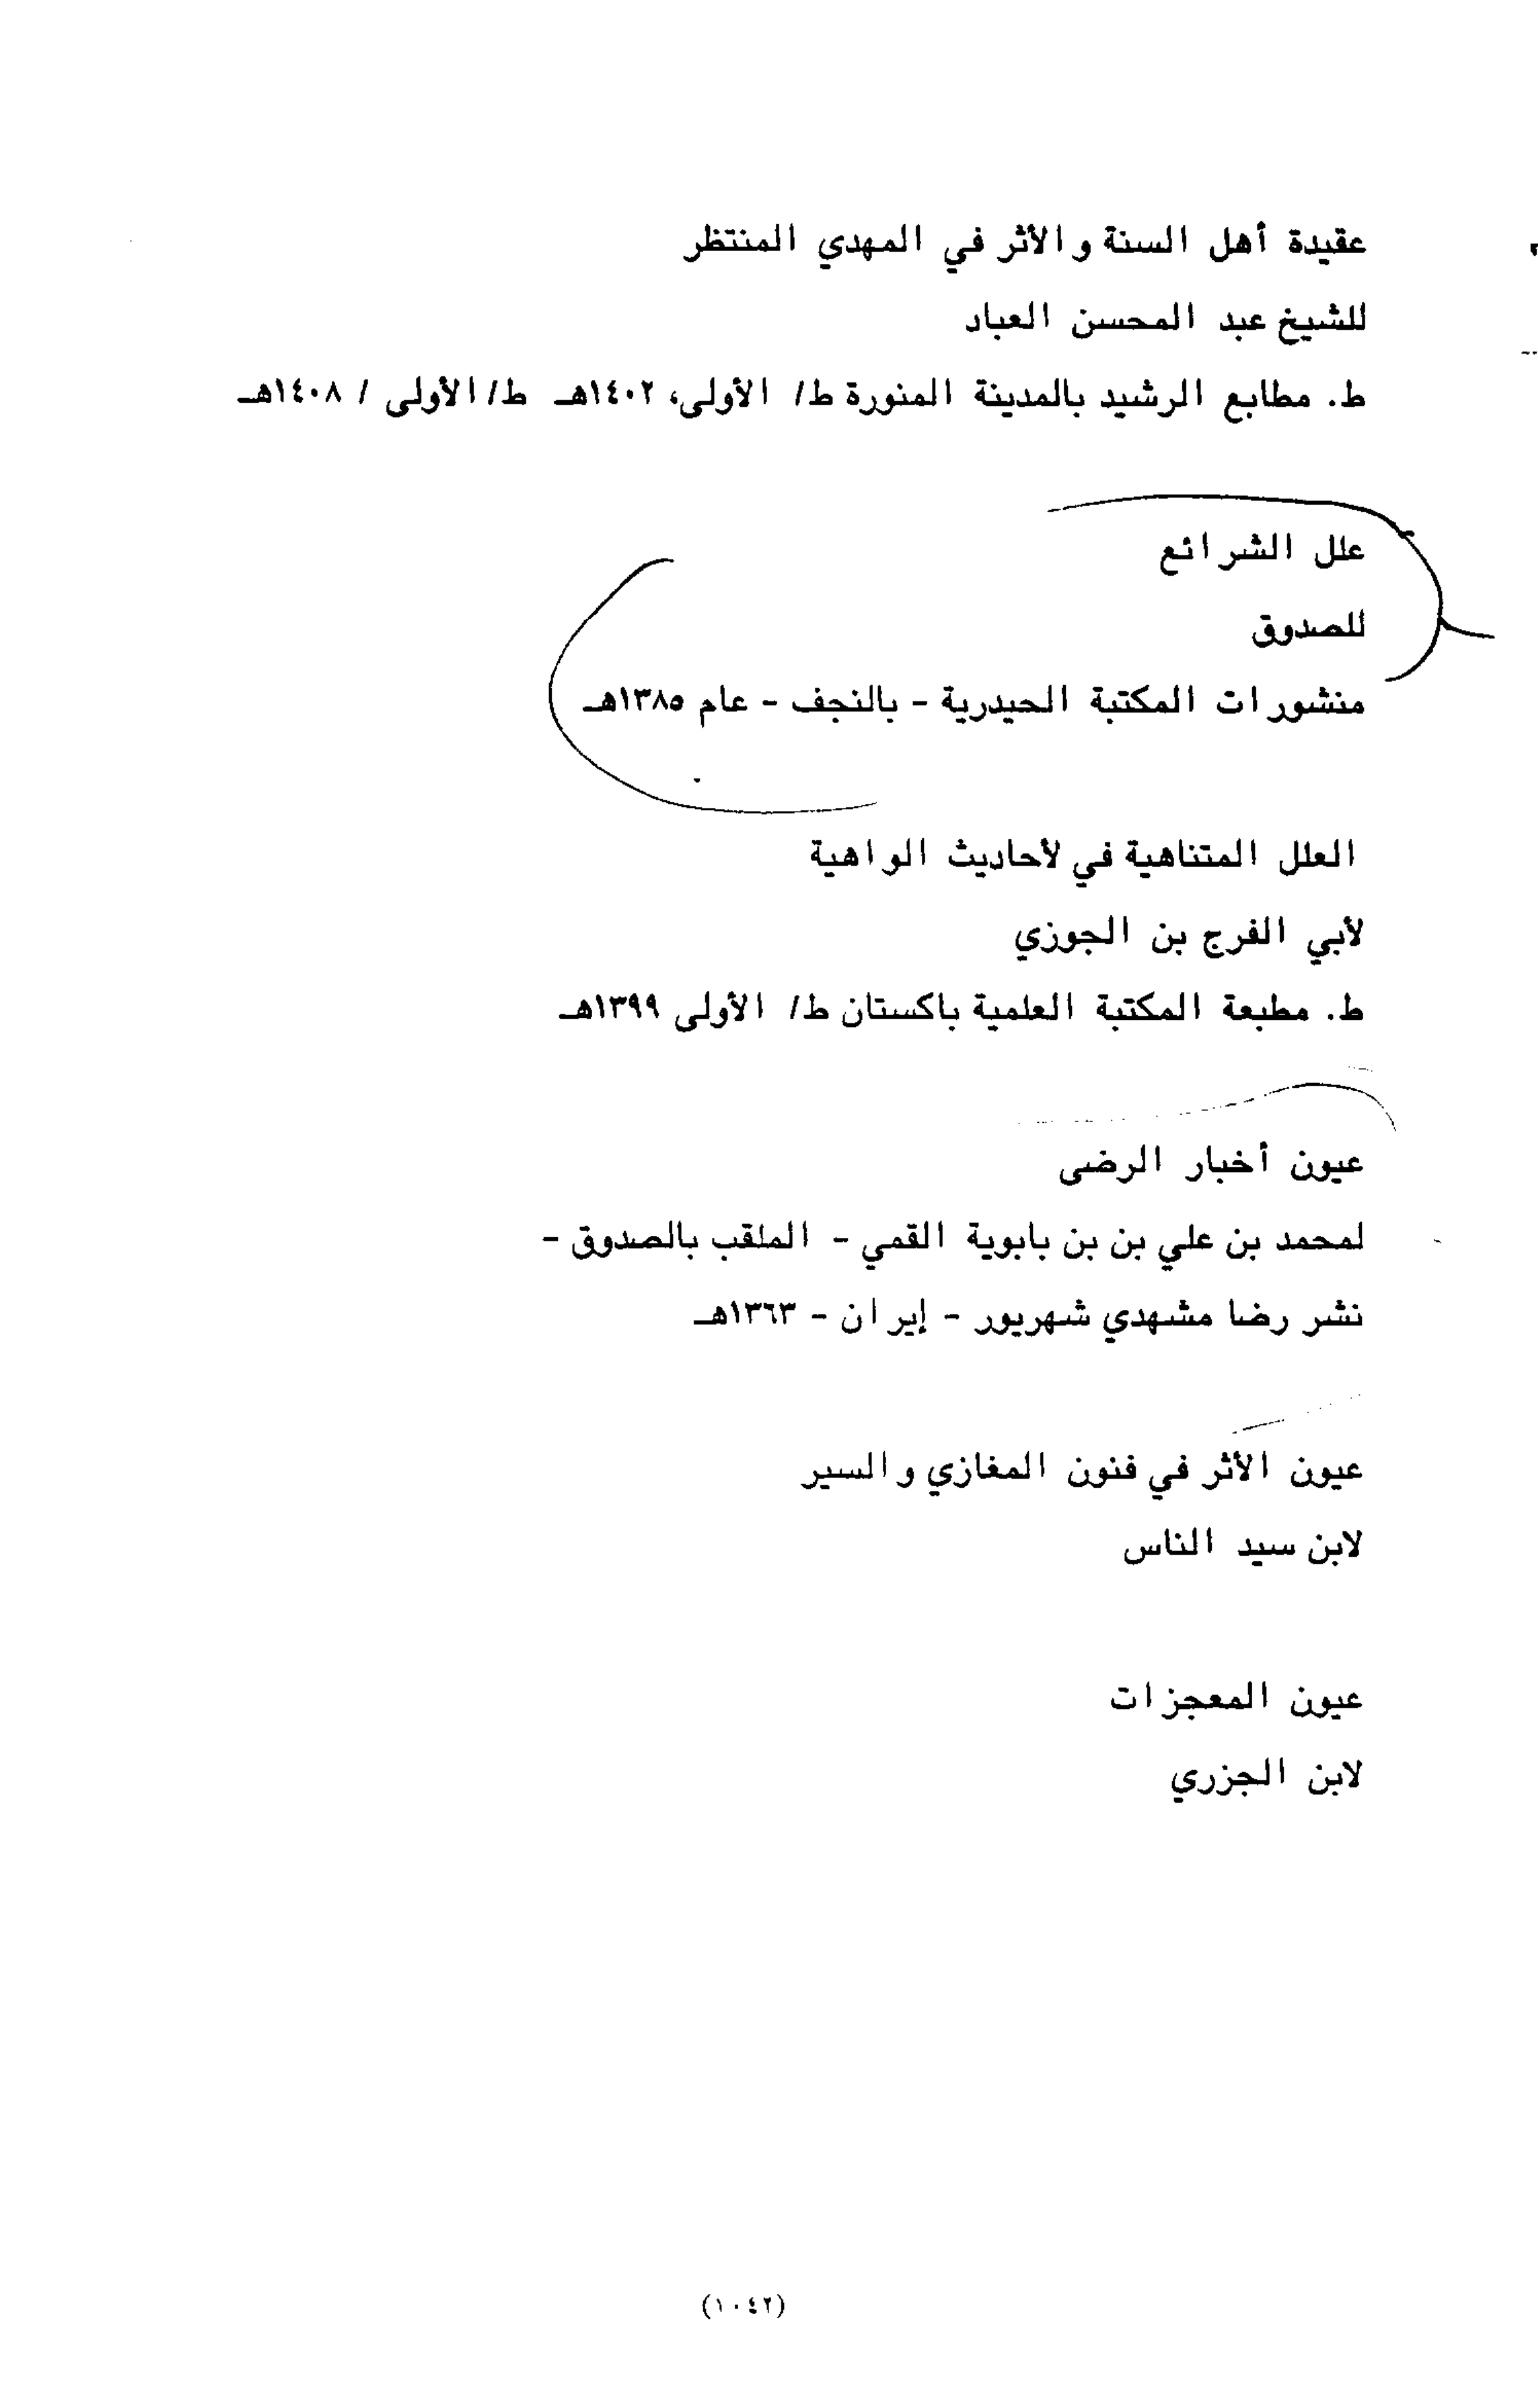 عقيدة أهل السنة والأثر في المهدي المنتظر
للشيخ عبد المحسن العباد
ط. مطابع الرشيد بالمدينة المنورة ط/ الأولى، ١٤٠٢هـ ط/ الأولى / ١٤٠٨هـ
علل الشرائع
للصدوق
منشورات المكتبة الحيدرية - بالنجف - عام ١٣٨٥هـ
العلل المتناهية في لأحاديث الواهية
لأبي الفرج بن الجوزي
ط. مطبعة المكتبة العلمية باكستان ط/ الأولى ١٣٩٩هـ
عيون أخبار الرضى
لمحمد بن علي بن بن بابوية القمي - الملقب بالصدوق -
نشر رضا مشهدي شهريور - إيران - ١٣٦٣هـ
عيون الأثر في فنون المغازي والسير
لابن سيد الناس
عيون المعجزات
لابن الجزري
(١٠٤٢)